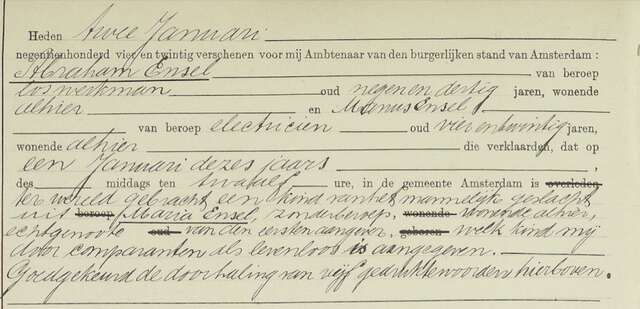 Heden twee Januari
negennhonderd vier en twintig verschenen voor mij Ambtenaar van den burgerlijken stand van Amsterdam :
Abraham Ensel van beroep
los werkman oud negen en dertig jaren, wonende
alhier en Manus Ensel
van beroep electricien oud vier en twintig jaren,
wonende alhier die verklaarden, dat op
een Januari dezes jaars ,
des middags ten twaalf ure, in de gemeente Amsterdam is overleden
ter wereld gebracht een kind van het mannelijk geslacht
uit beroep Maria Ensel, zonder beroep, wonende wonende alhier,
echtgenoote oud van den eersten aangever, geboren welk kind mij
door comparanten als levenloos is aangegeven.
Goedgekeurd de doorhaling van vijf gedrukte woorden hierboven.